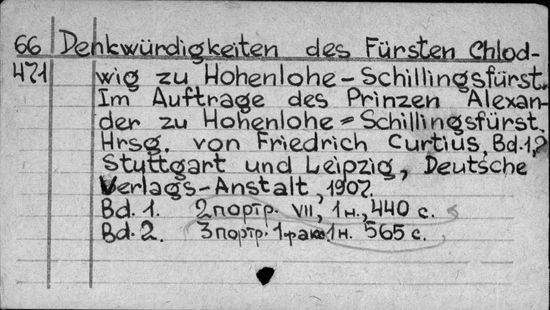 66 Denkwürdigkeiten des Fürsten Chlod-
471 wig zu Hohenlohe-Schillingsfürst.
Im Auftrage des Prinzen Alexan-
der zu Hohenlohe=Schillingsfürst.
Hrsg. von Friedrich Curtius, Bd.1,2
Stuttgart und Leipzig, Deutsche
Verlags-Anstalt, 1907.
Bd. 1. 2 портр. VII, 1 н., 440 с.
Bd. 2. 3 портр. 1 факс. 1 н. 565 с.